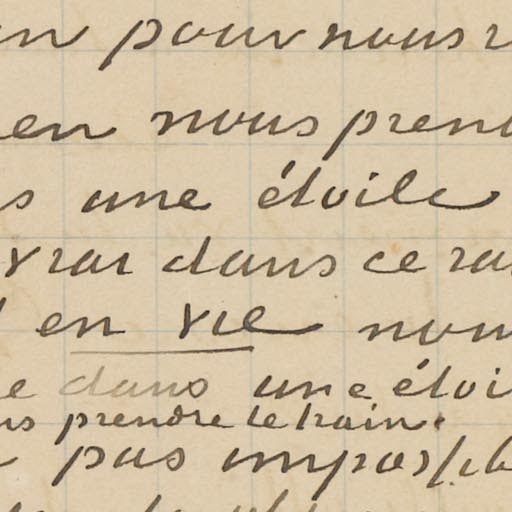 pour nous
en nous pren
une étoile
vrai dans ce
en vie nou
dans une étoi
prendre le train.
pas impossib